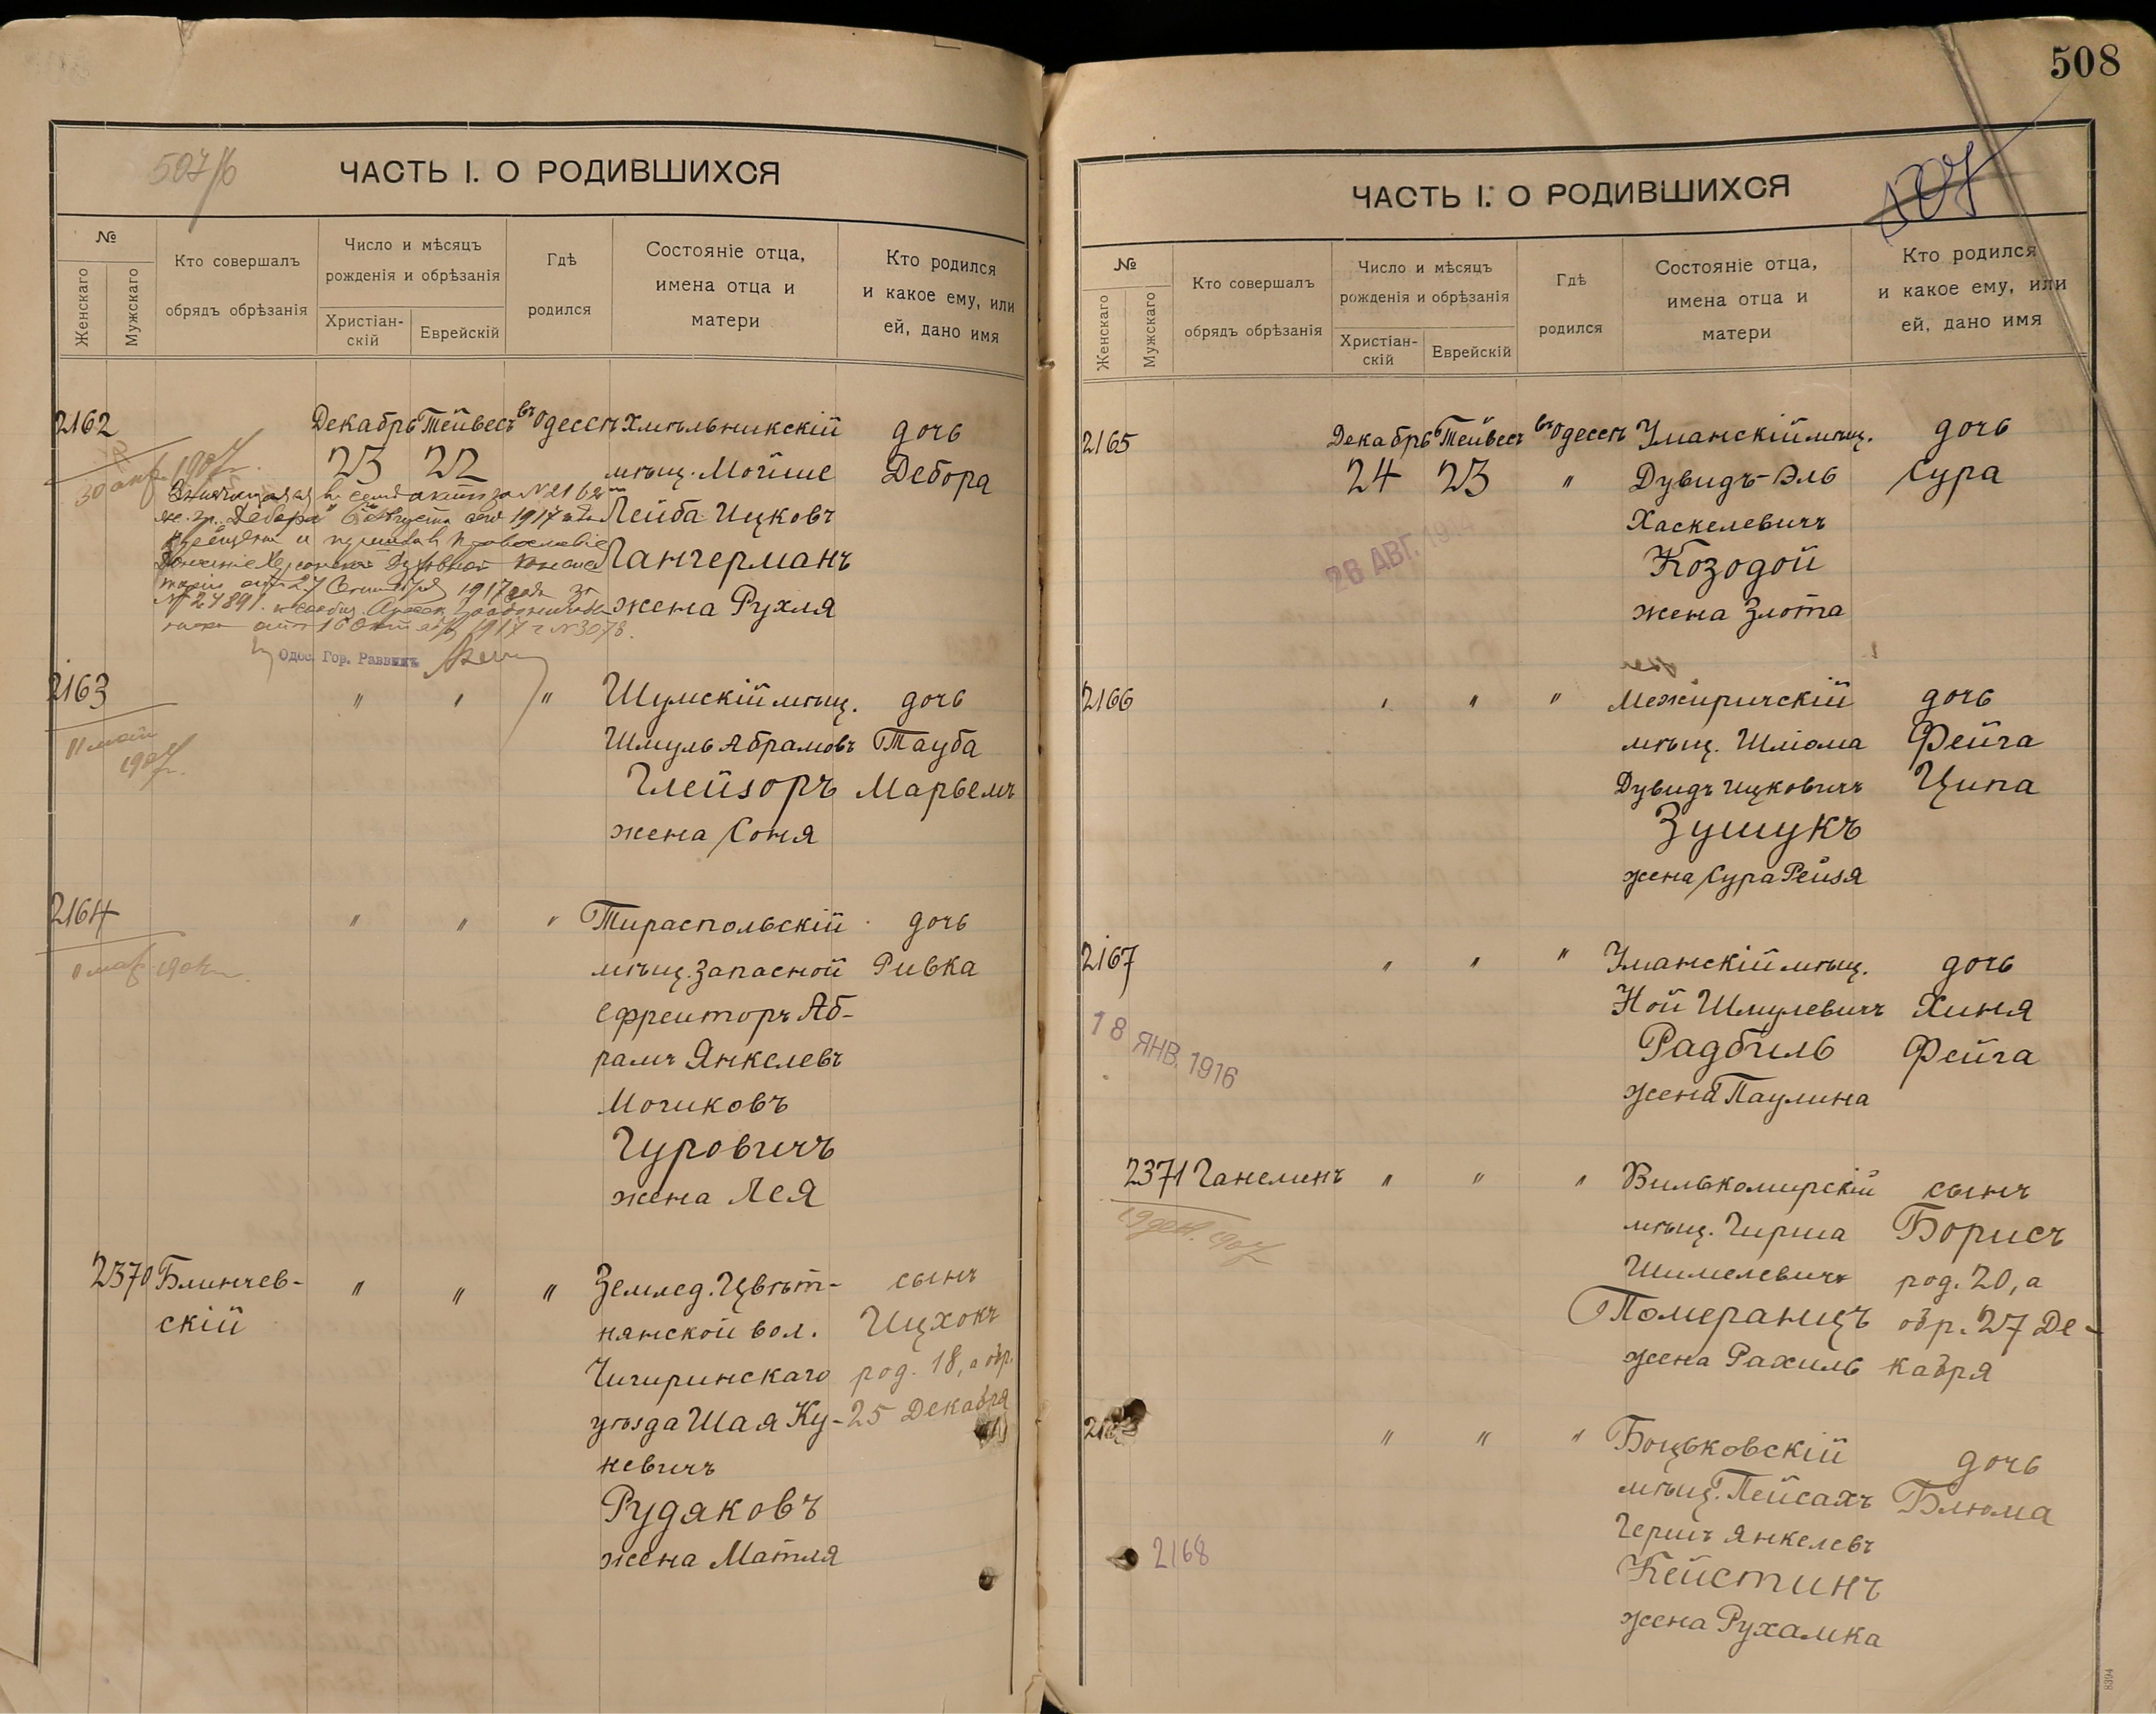 507/б
ЧАСТЬ I. О РОДИВШИХСЯ
№
Женскаго
Мужскаго
Кто совершалъ
обрядъ обрѣзанія
Число и мѣсяцъ
рожденія и обрѣзанія
Христіан-
скій
Еврейскій
Гдѣ
родился
Состояніе отца,
имена отца и
матери
Кто родился
и какое ему, или
ей, дано имя
2162 Декабрь Тейвесъ въ Одессѣ Хмѣльникскій дочь
23 22 мѣщ. Мойше Дебора
Лейба Ицковъ
Лангерманъ
жена Рухля
30 апр. 1907 г.
Значащаяся въ семъ актѣ за № 2162
же. гр. "Дебора" 6 Августа сего 1917 года
и православіе
Херсонской Духовной
отъ 27 Сентября 1917 года за
№ 24891.
отъ 16 Октября 1917 г. № 3078.
Одес. Гор. Раввинъ
2163 " " " Шумскій мѣщ. дочь
Шмуль Абрамовъ Тауба
Глейзоръ Марьемъ
жена Соня
11 май
1907 г.
2164 " " " Тираспольскій дочь
мѣщ. запасной Ривка
ефрейторъ Аб-
рамъ Янкелевъ
Мочиковъ
Гуровичъ
жена Лея
2370 Блинчев- " " " Землед. Цвѣт- сынъ
скій нянской вол. Ицхокъ
Чигиринскаго род. 18, а обр.
уѣзда Шая Ку- 25 Декабря
невичъ
Рудяковъ
жена Матля
508
ЧАСТЬ I. О РОДИВШИХСЯ
507
№
Женскаго
Мужскаго
Кто совершалъ
обрядъ обрѣзанія
Число и мѣсяцъ
рожденія и обрѣзанія
Христіан-
скій
Еврейскій
Гдѣ
родился
Состояніе отца,
имена отца и
матери
Кто родился
и какое ему, или
ей, дано имя
2165 Декабрь Тейвесъ въ Одессѣ Уманскій мѣщ. дочь
24 23 " Дувидъ-Эль Сура
Хаскелевичъ
Козодой
жена Злота
26 АВГ.
2166 " " " Межиричскій дочь
мѣщ. Шліома Фейга
Дувидъ Ицковичъ Ципа
Зушукъ
жена Сура Рейзя
2167 " " " Уманскій мѣщ. дочь
Ной Шмулевичъ Хиня
Радбиль Фейга
жена Паулина
18 ЯНВ. 1916
2371 Ганелинъ " " " Вилькомирскій сынъ
мѣщ. Гирша Борисъ
Шимелевичъ род. 20, а
Померанцъ обр. 27 Де-
жена Рахиль кабря
19 дек. 1907
" " " Боцьковскій дочь
мѣщ. Пейсахъ Блюма
Гершъ Янкелевъ
2168 Кейстинъ
жена Рухамка
8394